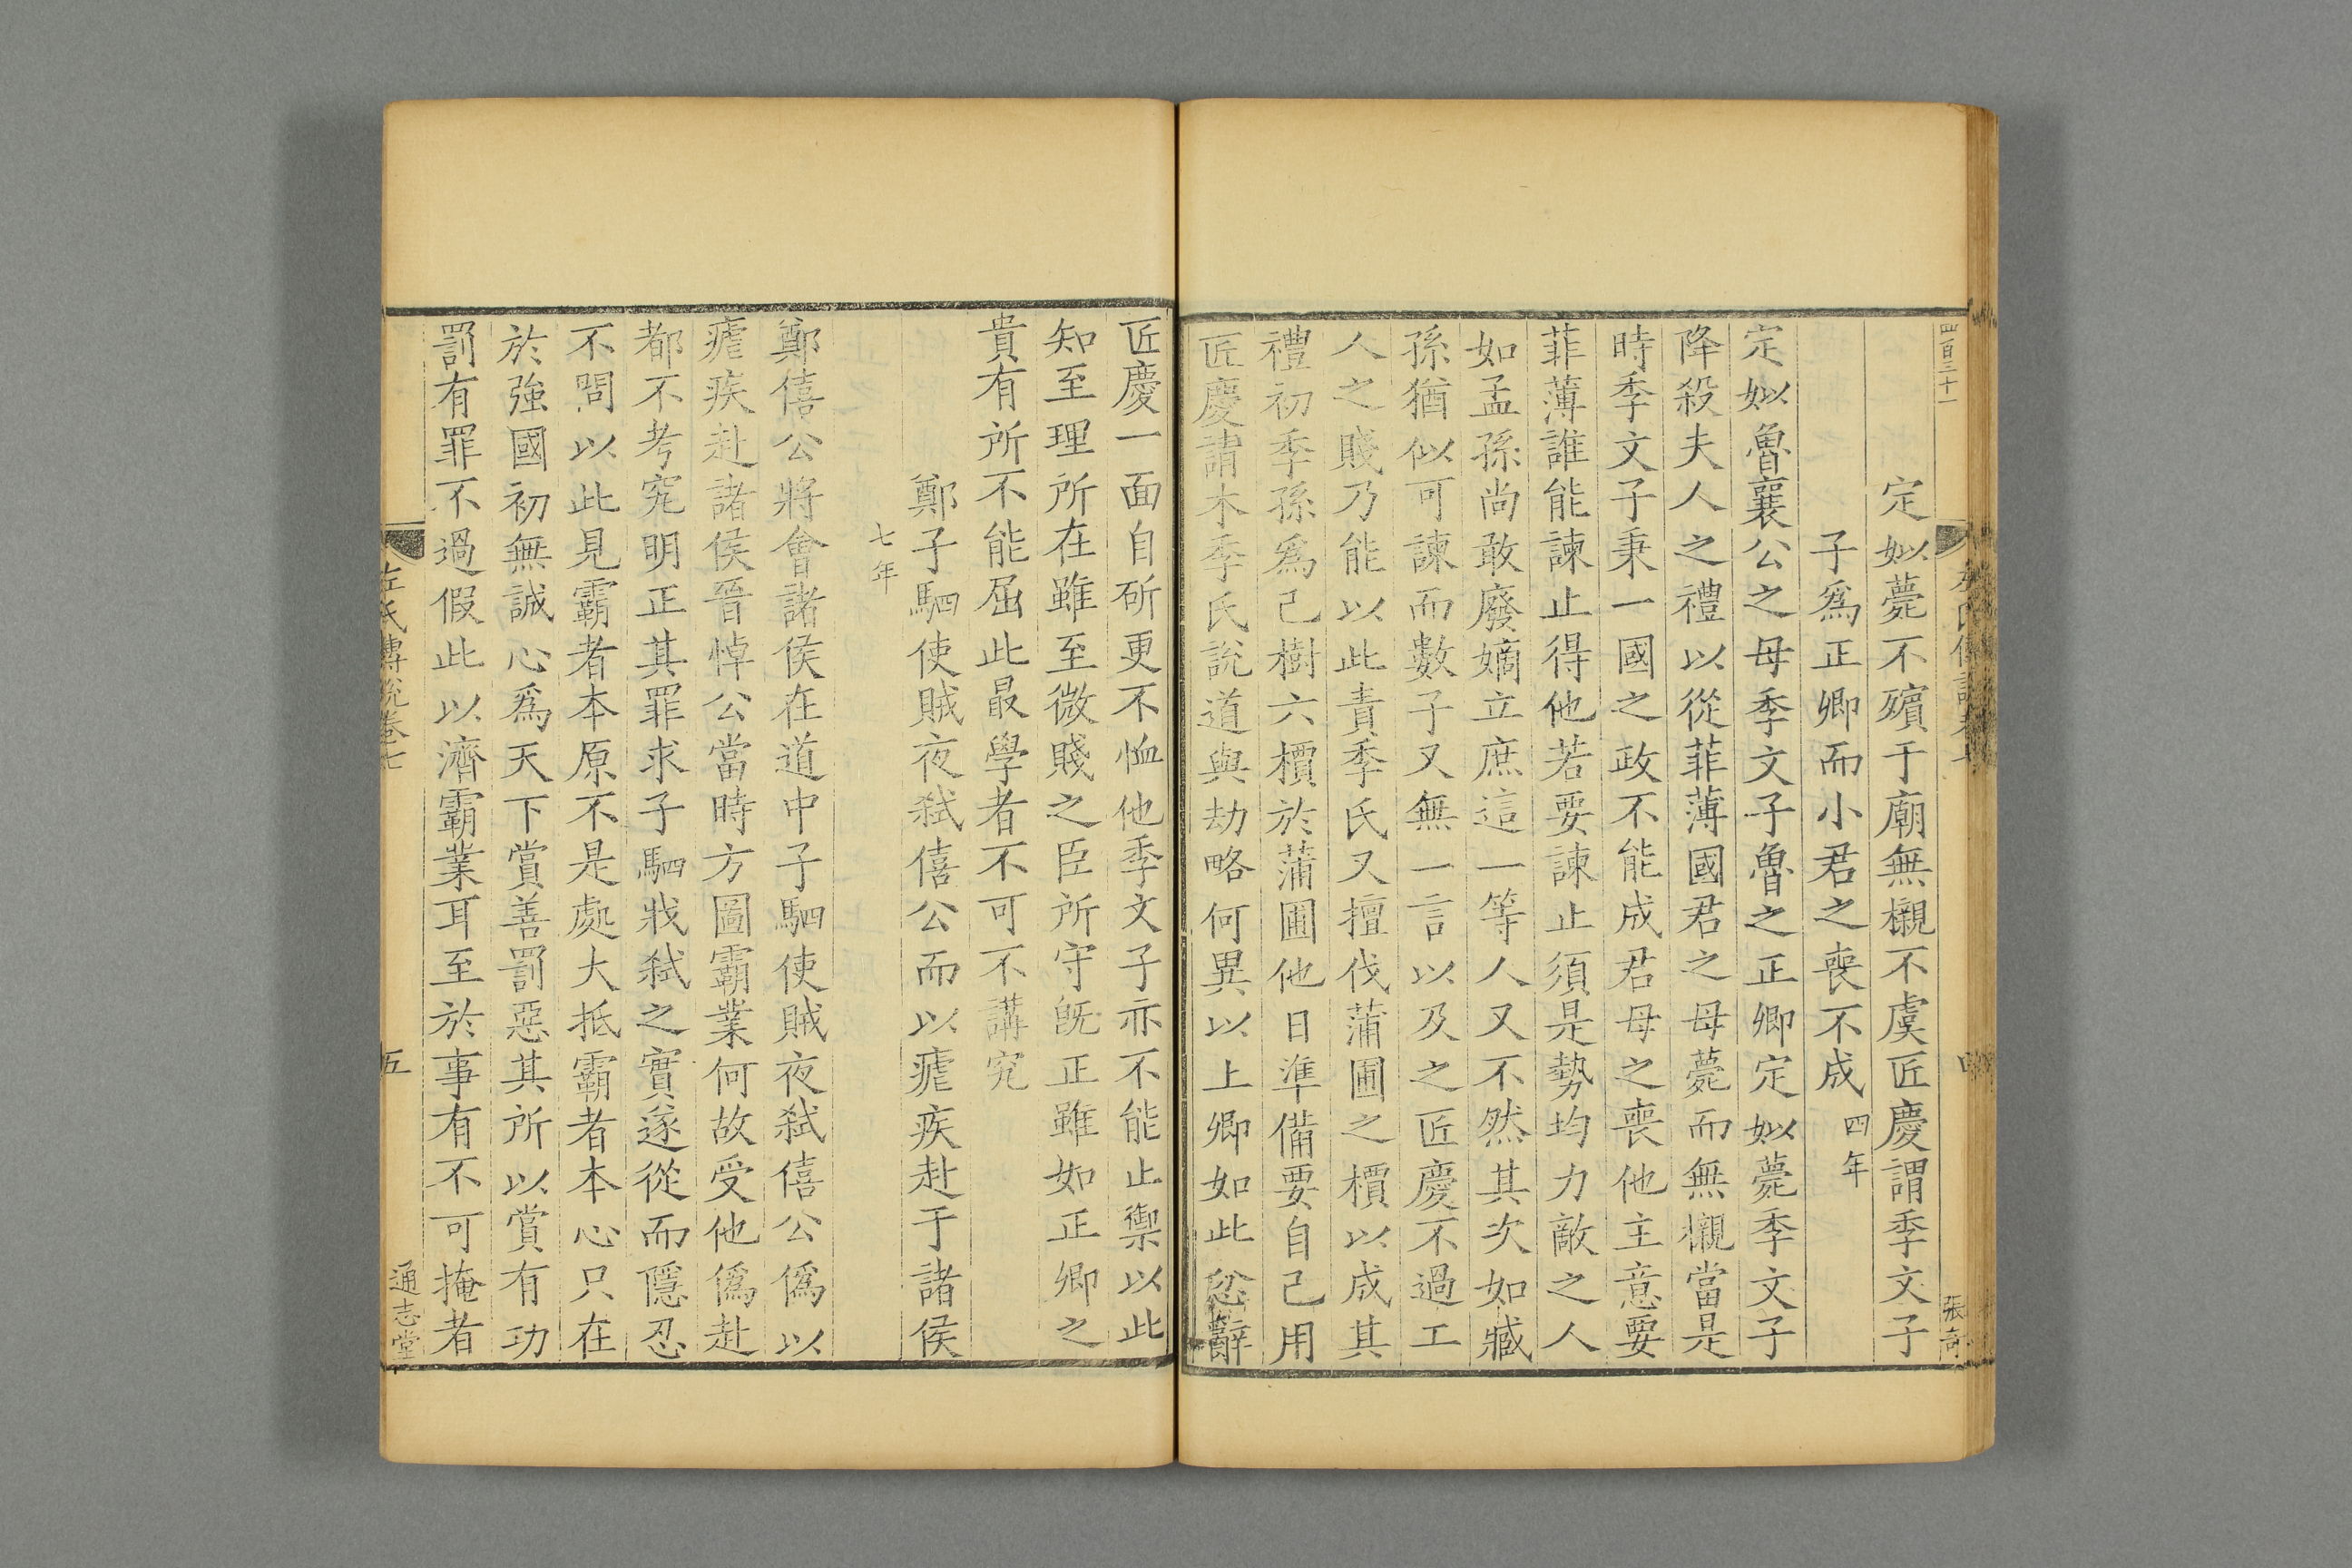 四百三十一
張奇
定姒薨不殯于廟無櫬不虞匠慶謂季文子
子爲正卿而小君之喪不成四年
定姒魯襄公之母季文子魯之正卿定姒薨季文子
降殺夫人之禮以從菲薄國君之母薨而無櫬當是
時季文子秉一國之政不能成君母之喪他主意要
菲薄誰能諫止得他若要諫止須是勢均力敵之人
如孟孫尚敢廢嫡立庶這一等人又不然其次如臧
孫猶似可諫而數子又無一言以及之匠慶不過工
人之賤乃能以此責季氏又擅伐蒲圃之檟以成其
禮初季孫爲己樹六檟於蒲圃他日準備要自己用
匠慶請木季氏說道與劫略何異以上卿如此忿辭
匠慶一面自斫更不恤他季文子亦不能止禦以此
知至理所在雖至微賤之臣所守旣正雖如正卿之
貴有所不能屈此最學者不可不講究
鄭子駟使賊夜弒僖公而以瘧疾赴于諸侯
七年
鄭僖公將會諸侯在道中子駟使賊夜弒僖公僞以
瘧疾赴諸侯晉悼公當時方圖霸業何故受他僞赴
都不考究明正其罪求子駟戕弒之實遂從而隱忍
不問以此見霸者本原不是處大抵霸者本心只在
於強國初無誠心爲天下賞善罰惡其所以賞有功
罰有罪不過假此以濟霸業耳至於事有不可掩者
左氏傳說卷七
五
通志堂